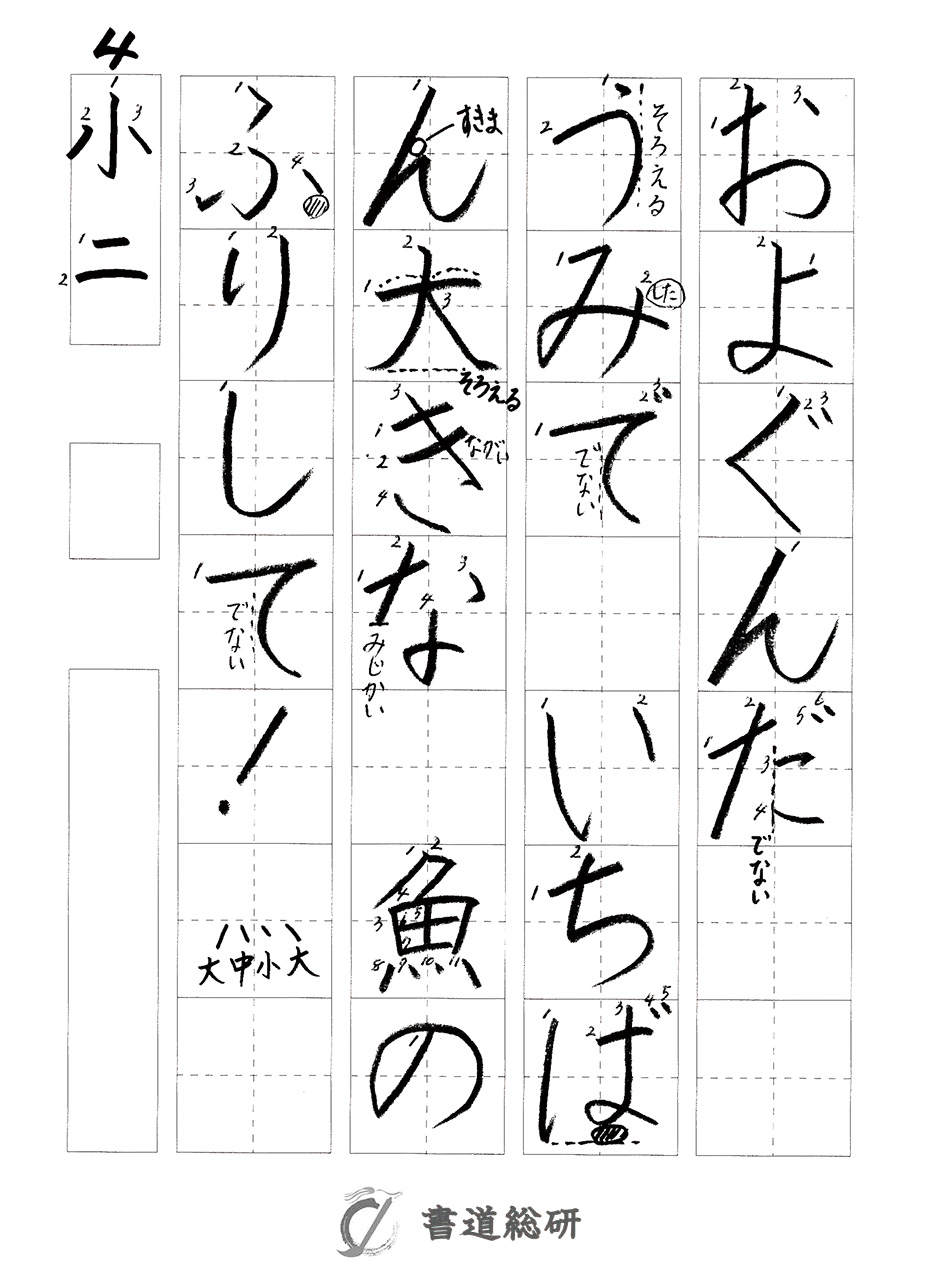 およぐんだ
うみで いちば
ん大きな 魚の
ふりして!
4
小二
そろえる
した
でない
でない
すきま
そろえる
ながい
みじかい
でない
大中小大
書道総研